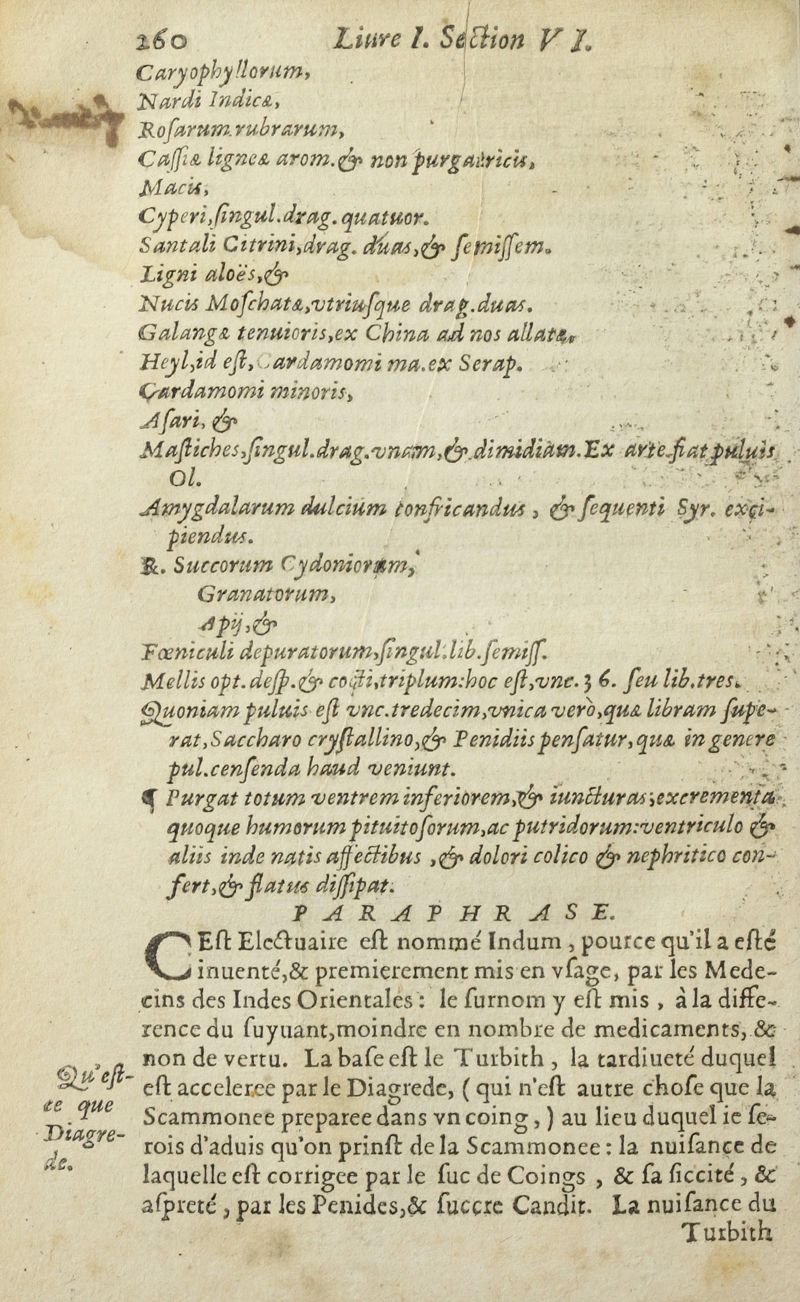 260 Liure I. Section VI.
Caryophyllorum,
Nardi Indicæ,
Rosarum. rubrarum,
Cassiæ ligneæ arom. & non purgatricis,
Macis,
Cyperi, singul. drag. quatuor.
Santali Citrini, drag. duas, & semissem.
Ligni aloës, &
Nucis Moschatæ, vtriusque drag. duas.
Galangæ tenuioris, ex China ad nos allatæ,
Heyl, id est, Cardamomi ma. ex Serap.
Cardamomi minoris,
Asari, &
Mastiches, singul. drag. vnam, & dimidiam. Ex arte fiat puluis
Ol.
Amygdalarum dulcium confricandus, & sequenti Syr. exci-
piendus.
℞. Succorum Cydoniorum,
Granatorum,
Apij, &
Fœniculi depuratorum, singul. lib. semiss.
Mellis opt. desp. & cocti, triplum: hoc est, vnc. 36. seu lib. tres.
Quoniam puluis est vnc. tredecim, vnica verò, quæ libram supe-
rat, Saccharo crystallino, & Penidiis pensatur, quæ in genere
pul. censenda haud veniunt.
¶ Purgat totum ventrem inferiorem, & iuncturas, excrementa
quoque humorum pituitosorum, ac putridorum: ventriculo &
aliis inde natis affectibus, & dolori colico & nephritico con-
fert, & flatus dissipat.
PARAPHRASE.
CEst Electuaire est nommé Indum, pource qu'il a esté
inuenté, & premierement mis en vsage, par les Mede-
cins des Indes Orientales: le surnom y est mis, à la diffe-
rence du suyuant, moindre en nombre de medicaments, &
non de vertu. La base est le Turbith, la tardiueté duquel
est acceleree par le Diagrede, (qui n'est autre chose que la
Scammonee preparee dans vn coing,) au lieu duquel ie se-
rois d'aduis qu'on prinst de la Scammonee: la nuisance de
laquelle est corrigee par le suc de Coings, & sa siccité, &
aspreté, par les Penides, & succre Candit. La nuisance du
Turbith
Qu'est-
ce que
Diagre-
de.